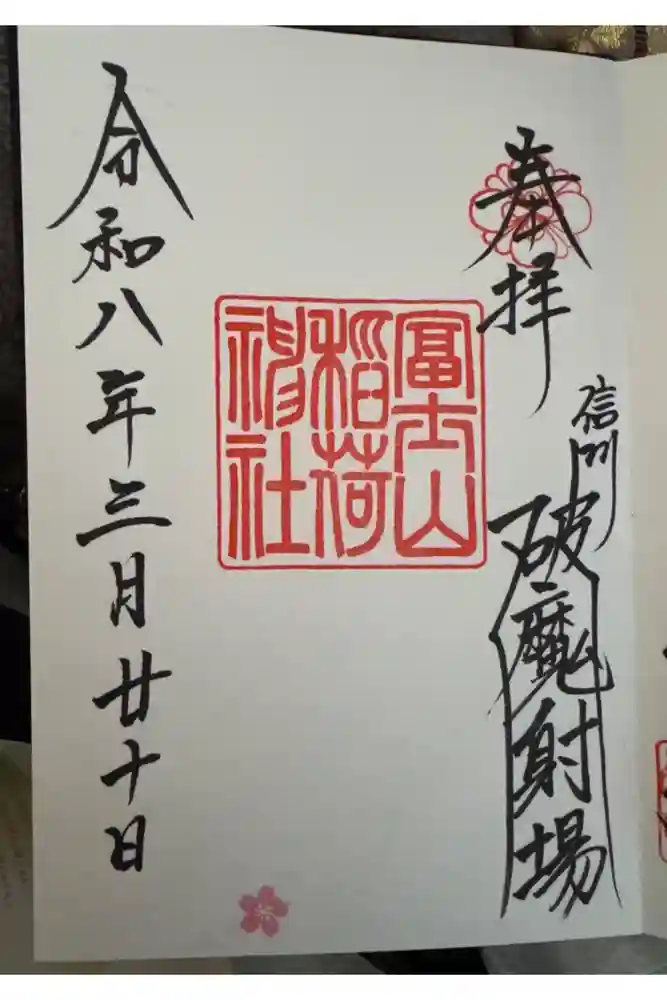 奉拝
信州
破魔射場
富士山
稲荷
神社
令和八年三月廿十日